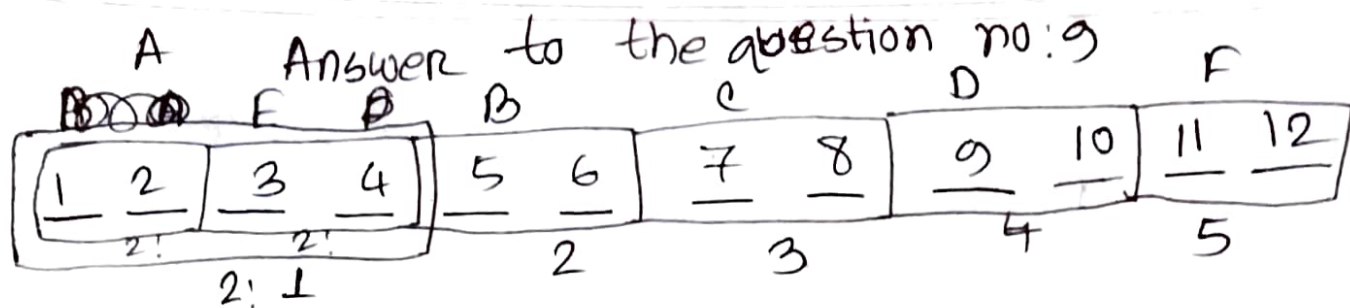 A Answer to the question no:9
E B C D F
1 2 3 4 5 6 7 8 9 10 11 12
2! 2! 2 3 4 5
2! 1